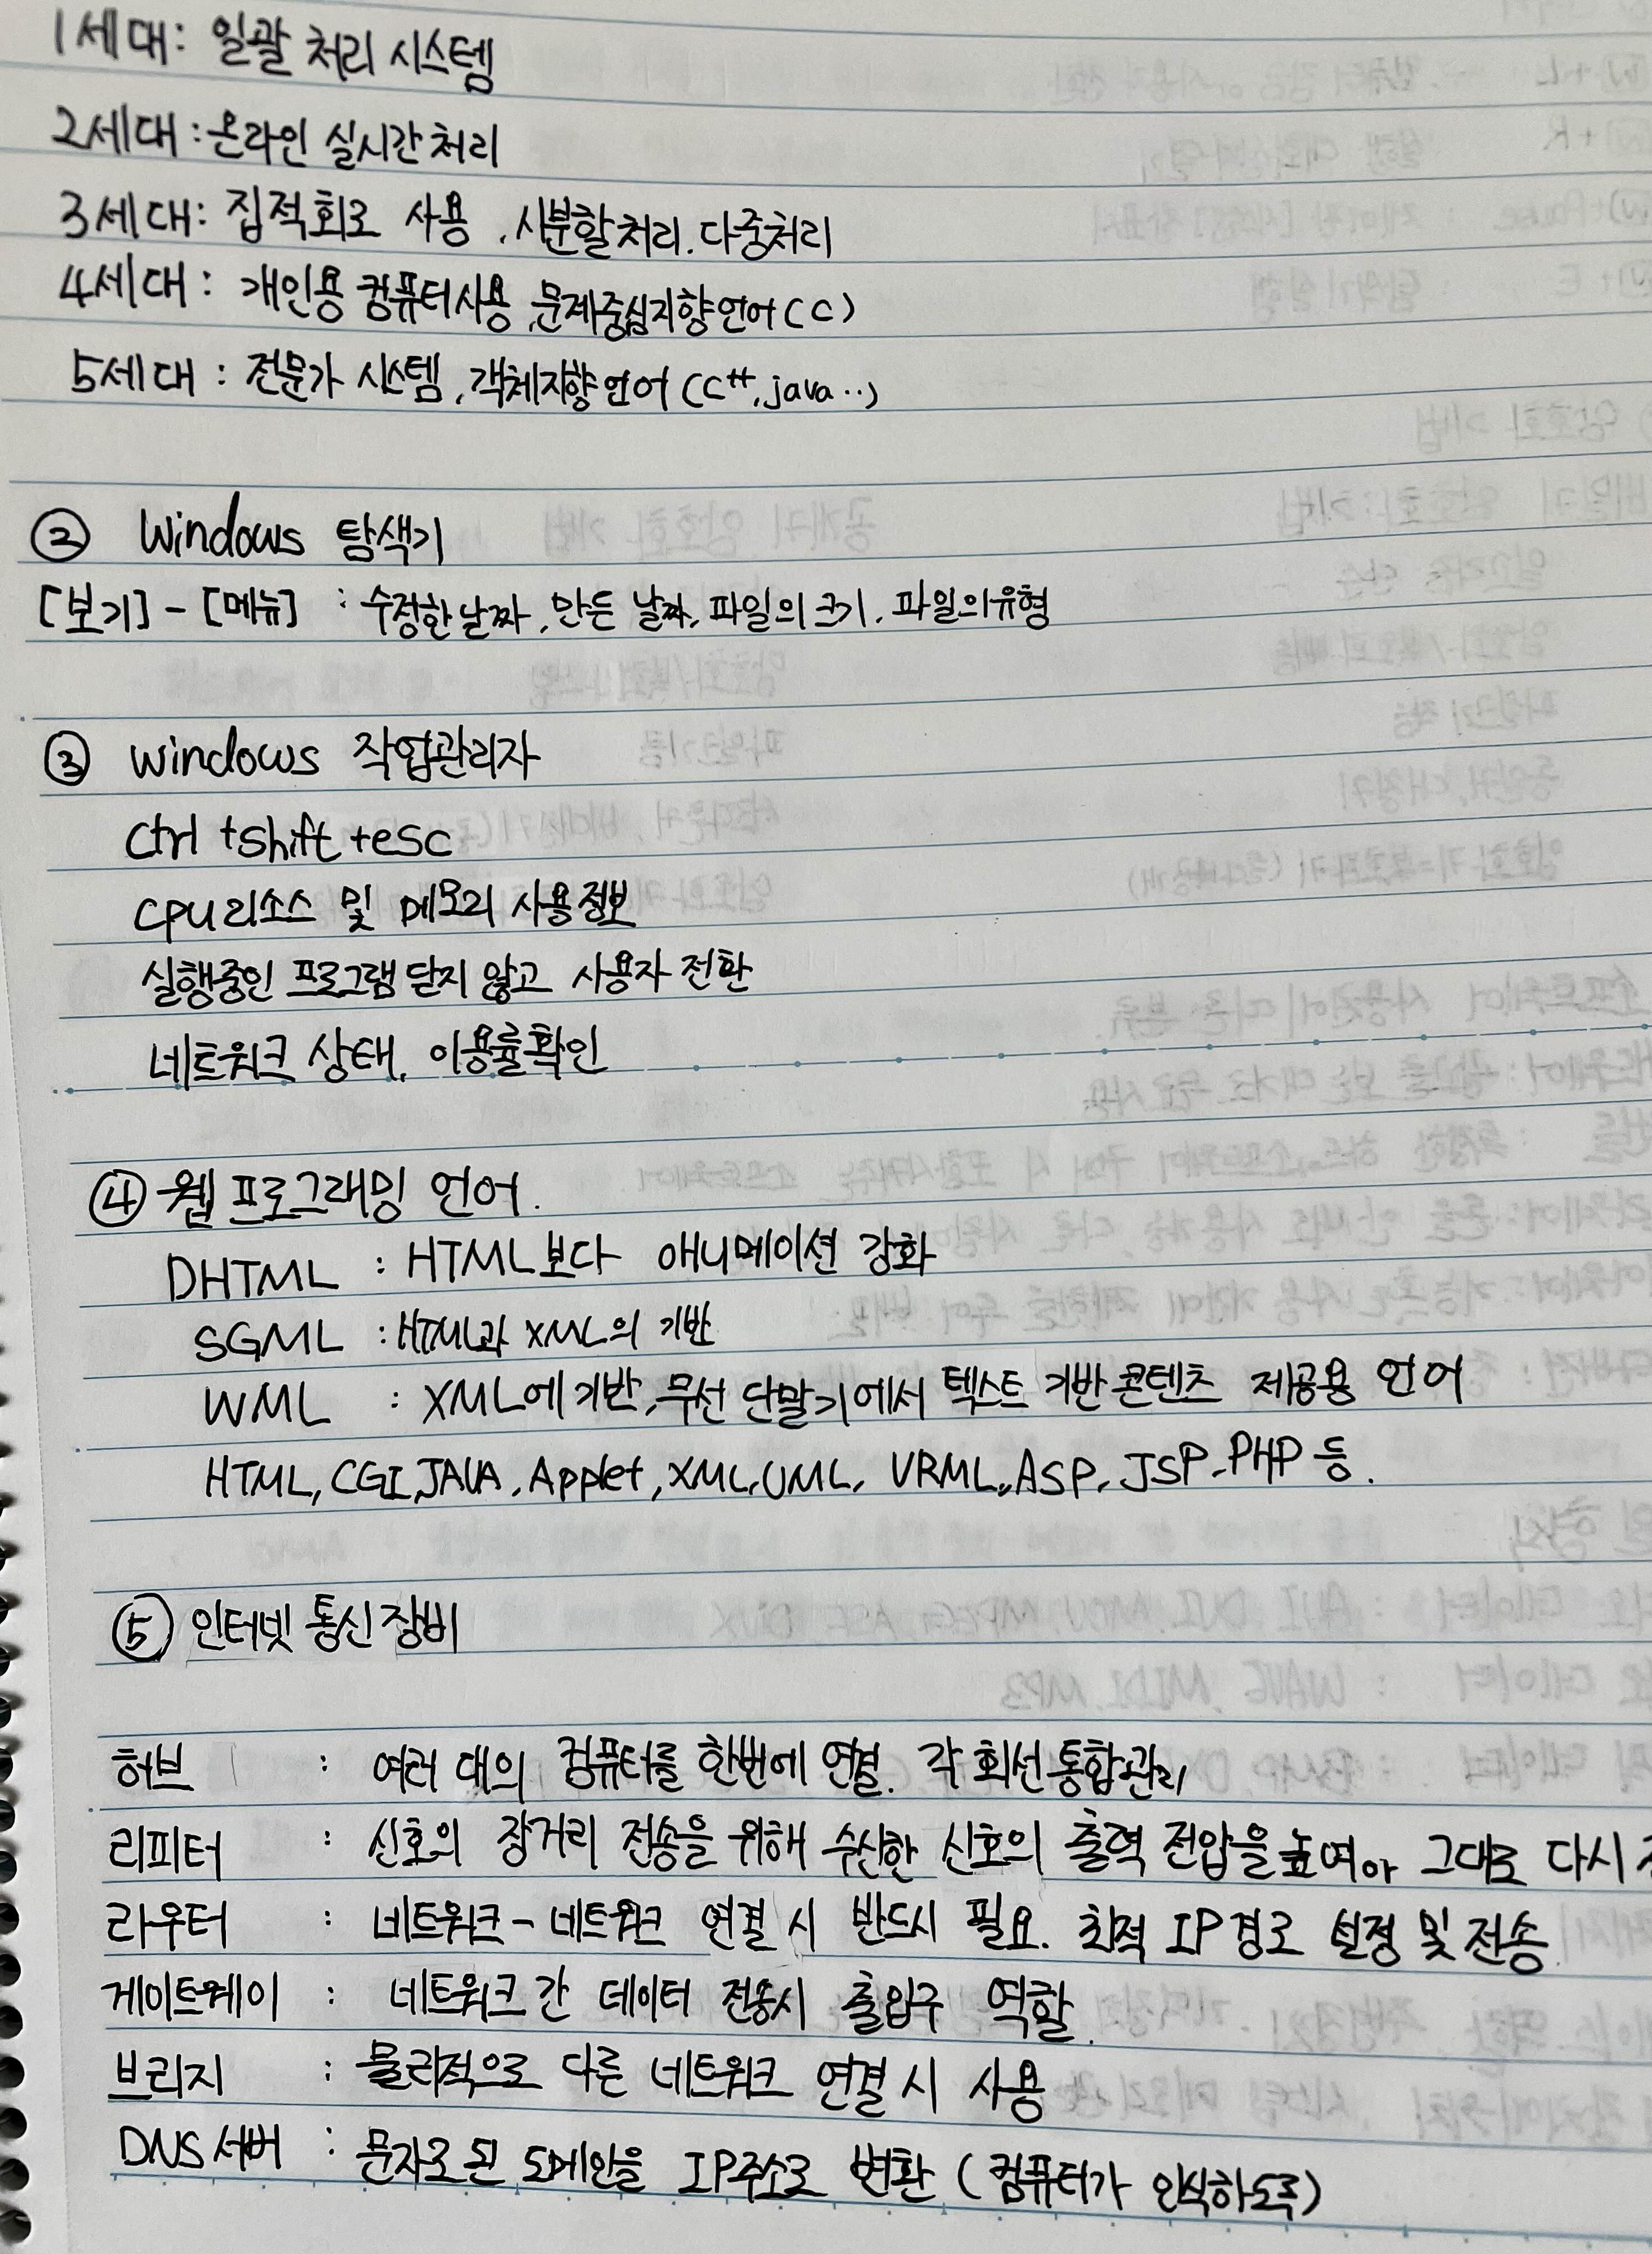 1세대: 일괄 처리 시스템
2세대: 온라인 실시간 처리
3세대: 집적회로 사용, 시분할처리, 다중처리
4세대: 개인용 컴퓨터사용, 문제중심지향언어(C)
5세대: 전문가 시스템, 객체지향언어(C++, java..)
② Windows 탐색기
[보기] - [메뉴] : 수정한 날짜, 만든 날짜, 파일의 크기, 파일의 유형
③ Windows 작업관리자
Ctrl +shift +esc
cpu 리소스 및 메모리 사용정보
실행중인 프로그램 닫지 않고 사용자 전환
네트워크 상태, 이용률확인
④ 웹 프로그래밍 언어.
DHTML : HTML보다 애니메이션 강화
SGML : HTML과 XML의 기반
WML : XML에 기반, 무선 단말기에서 텍스트 기반 콘텐츠 제공용 언어
HTML, CGI, JAVA, Applet, XML, UML, VRML, ASP, JSP, PHP 등.
⑤ 인터넷 통신장비
허브 : 여러 대의 컴퓨터를 한번에 연결. 각 회선 통합관리
리피터 : 신호의 장거리 전송을 위해 수신한 신호의 출력 전압을 높여아 그대로 다시
라우터 : 네트워크 - 네트워크 연결 시 반드시 필요. 최적 IP 경로 설정 및 전송
게이트웨이 : 네트워크 간 데이터 전송시 출입구 역할.
브리지 : 물리적으로 다른 네트워크 연결 시 사용
DNS 서버 : 문자로 된 도메인을 IP주소로 변환 (컴퓨터가 인식하도록)